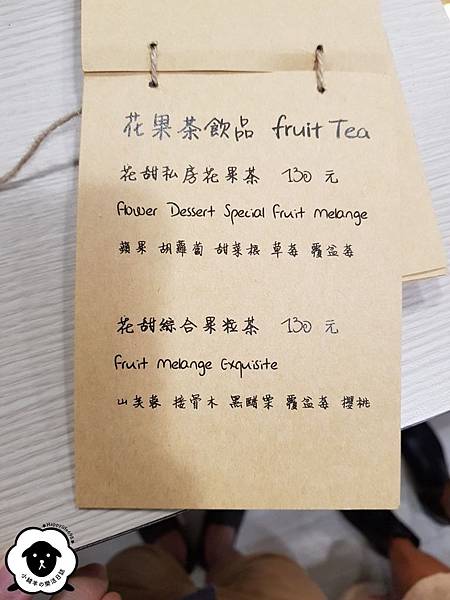 花果茶飲品 fruit Tea
花甜私房花果茶 130 元
flower Dessert Special fruit melange
蘋果 胡蘿蔔 甜菜根 草莓 覆盆莓
花甜綜合果粒茶 130 元
fruit melange Exquisite
山芙蓉 接骨木 黑醋栗 覆盆莓 櫻桃